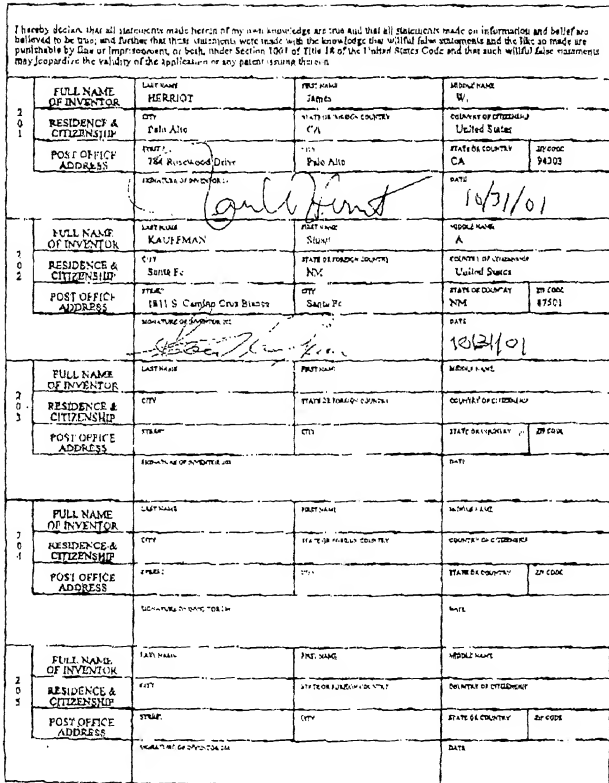 I hereby declare that all statements made herein of my own knowledge are true and that all statements made on information and belief are
believed to be true; and further that these statements were made with the knowledge that willful false statements and the like so made are
punishable by fine or imprisonment, or both, under Section 1001 of Title 18 of the United States Code and that such willful false statements
may jeopardize the validity of the application or any patent issuing thereon
201
FULL NAME OF INVENTOR
LAST NAME HERRIOT
FIRST NAME James
MIDDLE NAME W.
RESIDENCE & CITIZENSHIP
CITY Palo Alto
STATE OR FOREIGN COUNTRY CA
COUNTRY OF CITIZENSHIP United States
POST OFFICE ADDRESS
STREET 784 Rosewood Drive
CITY Palo Alto
STATE OR COUNTRY CA
ZIP CODE 94303
SIGNATURE OF INVENTOR
DATE 10/31/01
202
FULL NAME OF INVENTOR
LAST NAME KAUFFMAN
FIRST NAME Stuart
MIDDLE NAME A
RESIDENCE & CITIZENSHIP
CITY Santa Fe
STATE OR FOREIGN COUNTRY NM
COUNTRY OF CITIZENSHIP United States
POST OFFICE ADDRESS
STREET 1811 S. Camino Cruz Blanca
CITY Santa Fe
STATE OR COUNTRY NM
ZIP CODE 87501
SIGNATURE OF INVENTOR 202
DATE 10/31/01
203
FULL NAME OF INVENTOR
LAST NAME
FIRST NAME
MIDDLE NAME
RESIDENCE & CITIZENSHIP
CITY
STATE OR FOREIGN COUNTRY
COUNTRY OF CITIZENSHIP
POST OFFICE ADDRESS
STREET
CITY
STATE OR COUNTRY
ZIP CODE
SIGNATURE OF INVENTOR 203
DATE
204
FULL NAME OF INVENTOR
LAST NAME
FIRST NAME
MIDDLE NAME
RESIDENCE & CITIZENSHIP
CITY
STATE OR FOREIGN COUNTRY
COUNTRY OF CITIZENSHIP
POST OFFICE ADDRESS
STREET
CITY
STATE OR COUNTRY
ZIP CODE
SIGNATURE OF INVENTOR 204
DATE
205
FULL NAME OF INVENTOR
LAST NAME
FIRST NAME
MIDDLE NAME
RESIDENCE & CITIZENSHIP
CITY
STATE OR FOREIGN COUNTRY
COUNTRY OF CITIZENSHIP
POST OFFICE ADDRESS
STREET
CITY
STATE OR COUNTRY
ZIP CODE
SIGNATURE OF INVENTOR
DATE